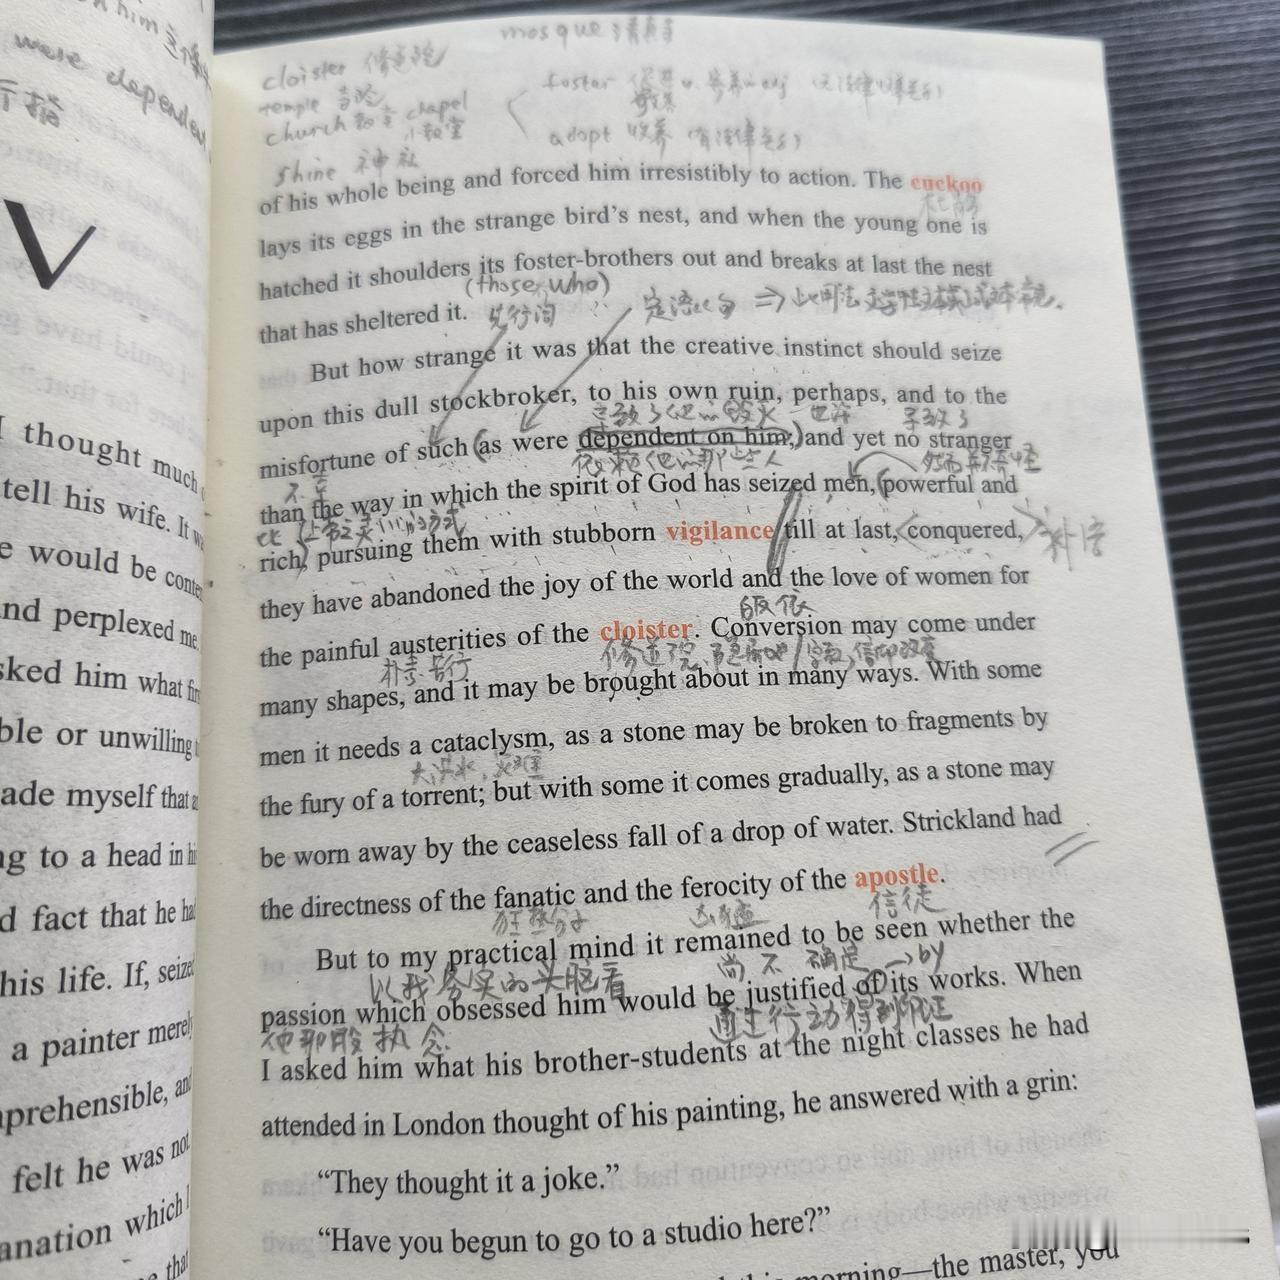 him
were depend
mosque 清真寺
cloister 修道院
foster
temple 寺院
church 教堂 chapel
小教堂
adopt 收养 (有法律关系)
shine 神社
of his whole being and forced him irresistibly to action. The cuckoo
杜鹃
lays its eggs in the strange bird's nest, and when the young one is
hatched it shoulders its foster-brothers out and breaks at last the nest
(those who)
that has sheltered it. 先行词 定语从句 ⇒
But how strange it was that the creative instinct should seize
upon this dull stockbroker, to his own ruin, perhaps, and to the
导致了他的毁灭 也许 导致了
misfortune of such (as were dependent on him,) and yet no stranger
不幸 依赖他的那些人
than the way in which the spirit of God has seized men, (powerful and
比 的方式
rich), pursuing them with stubborn vigilance till at last, <conquered,> 补语
they have abandoned the joy of the world and the love of women for
皈依
the painful austerities of the cloister. Conversion may come under
朴素 苦行 修道院
many shapes, and it may be brought about in many ways. With some
men it needs a cataclysm, as a stone may be broken to fragments by
大洪水, 灾难
the fury of a torrent; but with some it comes gradually, as a stone may
be worn away by the ceaseless fall of a drop of water. Strickland had
the directness of the fanatic and the ferocity of the apostle.
狂热分子 信徒
But to my practical mind it remained to be seen whether the
以我务实的头脑看 尚不确定 → by
passion which obsessed him would be justified of its works. When
他那股执念 通过行动得到印证
I asked him what his brother-students at the night classes he had
attended in London thought of his painting, he answered with a grin:
"They thought it a joke."
"Have you begun to go to a studio here?"
morning—the master, you
V
I thought much
tell his wife. It
would be
and perplexed me.
asked him what
or unwilling
made myself that
to a head in
fact that he
his life. If, seized
a painter merely
felt he was not
which I
that